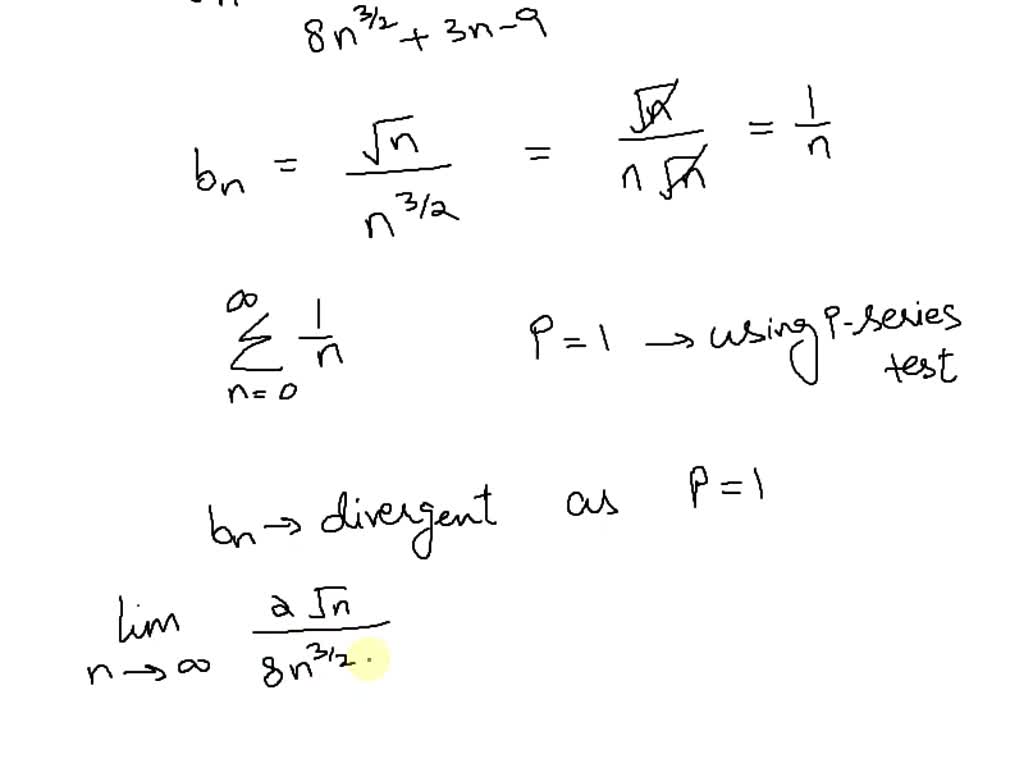 8n^{3/2} + 3n - 9
b_n = \frac{\sqrt{n}}{n^{3/2}} = \frac{\sqrt{n}}{n\sqrt{n}} = \frac{1}{n}
\sum_{n=0}^{\infty} \frac{1}{n} P = 1 → using P-series
test
b_n → divergent as P = 1
\lim_{n→∞} \frac{2\sqrt{n}}{8n^{3/2}}